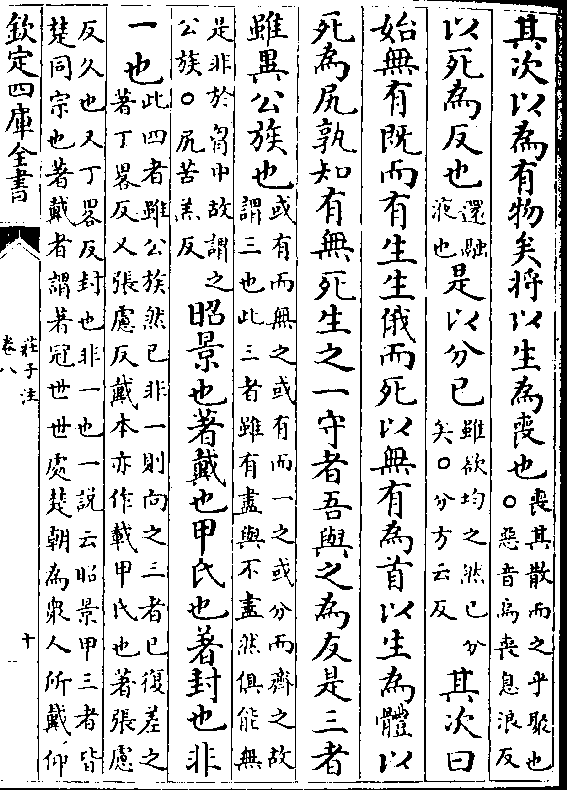 其次以為有物矣將以生為喪也喪其散而之乎聚也○惡音烏喪息浪反
以死為反也還融液也是以分已雖欲均之然已分矣○分方云反其次曰
始無有既而有生生俄而死以無有為首以生為體以
死為尻孰知有無死生之一守者吾與之為友是三者
雖異公族也或有而無之或有而一之或分而齊之故謂三也此三者雖有盡與不盡然俱能無
是非於胷中故謂之公族○尻苦羔反昭景也著戴也甲氏也著封也非
一也此四者雖公族然已非一則向之三者已復差之著丁畧反又張慮反戴本亦作載甲氏也著張慮
反久也又丁畧反封也非一也一説云昭景甲三者皆
楚同宗也著戴者謂著冠世世處楚朝為衆人所戴仰
欽定四庫全書
莊子注
卷八
十